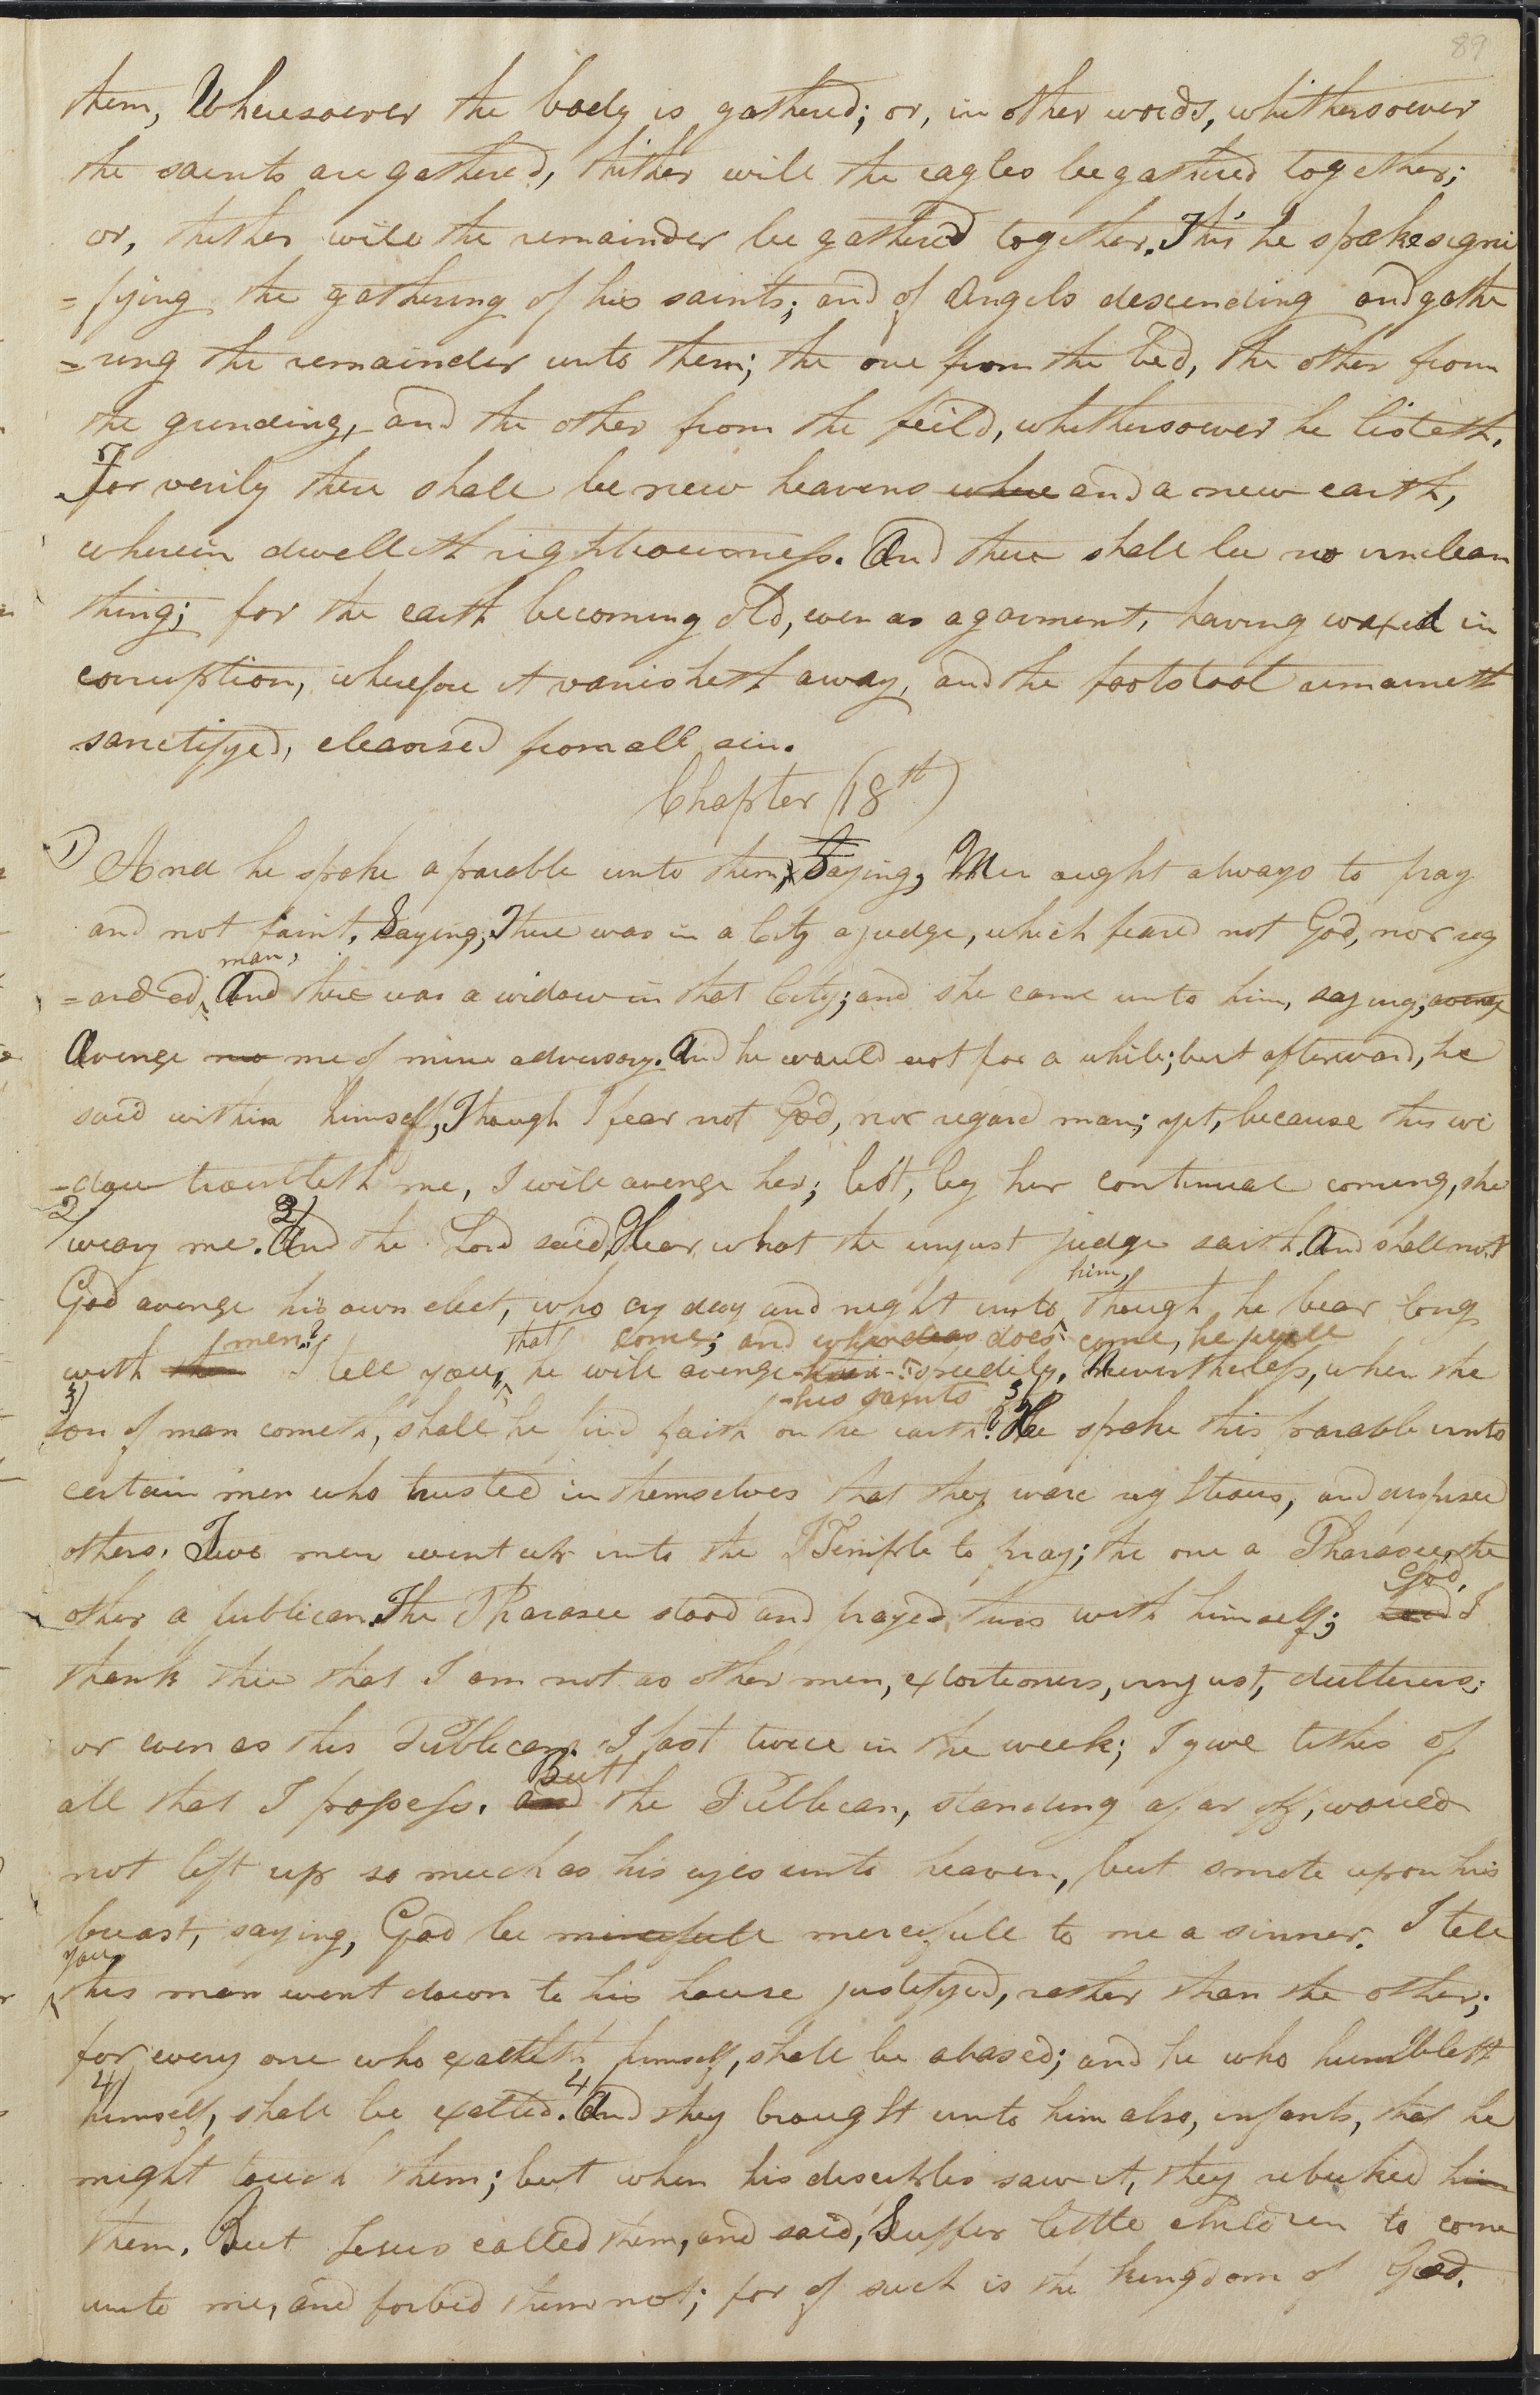 89
them, Wheresoever the body is gathered; or, in other words, whithersoever
the saints are gathered, thither will the eagles be gathered together;
or, thither will the remainder be gathered together. This he spoke signi
=fying the gathering of his saints; and of Angels descending and gathe
=ring the remainder unto them; the one from the bed, the other from
the grinding, and the other from the feild, whithersoever he listeth.
For verily there shall be new heavens where and a new earth,
wherein dwelleth righteousness. And there shall be no unclean
thing; for the earth becoming old, even as a garment, having waxed in
corruption, wherefore it vanisheth away, and the footstool remaineth
sanctifyed, cleansed from all sin.
Chapter (18th)
1) And he spoke a parable unto them, Saying, Men aught always to pray
and not faint, Saying, There was in a City a judge, which feared not God, nor reg
man,
=arded, And there was a widow in that City; and she came unto him, saying, aveng
Avenge me me of mine adversary. And he would not for a while; but afterward, he
said within himself, Though I fear not God, nor regard man; yet, because this wi
=dow troubleth me, I will avenge her; lest, by her continual coming, she
2/ weary me. 2/ And the Lord said, Hear what the unjust judge saith. And shall not
him,
God avenge his own elect, who cry day and night unto though he bear long
men? that come; and when does come, he will
with I tell you, he will avenge speedily. Nevertheless, when the
his saints
3/ son of man cometh, shall he find faith on the earth? 3/ He spoke this parable unto
certain men who trusted in themselves that they ware righteous, and despised
others. Two men went up into the Temple to pray; the one a Pharasee, the
God,
other a publican. The Pharasee stood and prayed thus with himself; I
thank thee that I am not as other men, extortioners, unjust, dulterers;
or even as this Publican. I fast twice in the week; I give tithes of
but
all that I possess. and the Publican, standing afar off, would
not lift up so much as his eyes unto heaven, but smote upon his
breast, saying, God be mercifull mercifull to me a sinner. I tell
you,
this man went down to his house justifyed, rather than the other;
for every one who exalteth himself, shall be abased; and he who humbleth
4/ himself, shall be exalted. 4/ And they brought unto him also, infants, that he
might touch them; but when his desciples saw it, they rebuked him
them. But Jesus called them, and said, Suffer little children to come
unto me, and forbid them not; for of such is the kingdom of God.